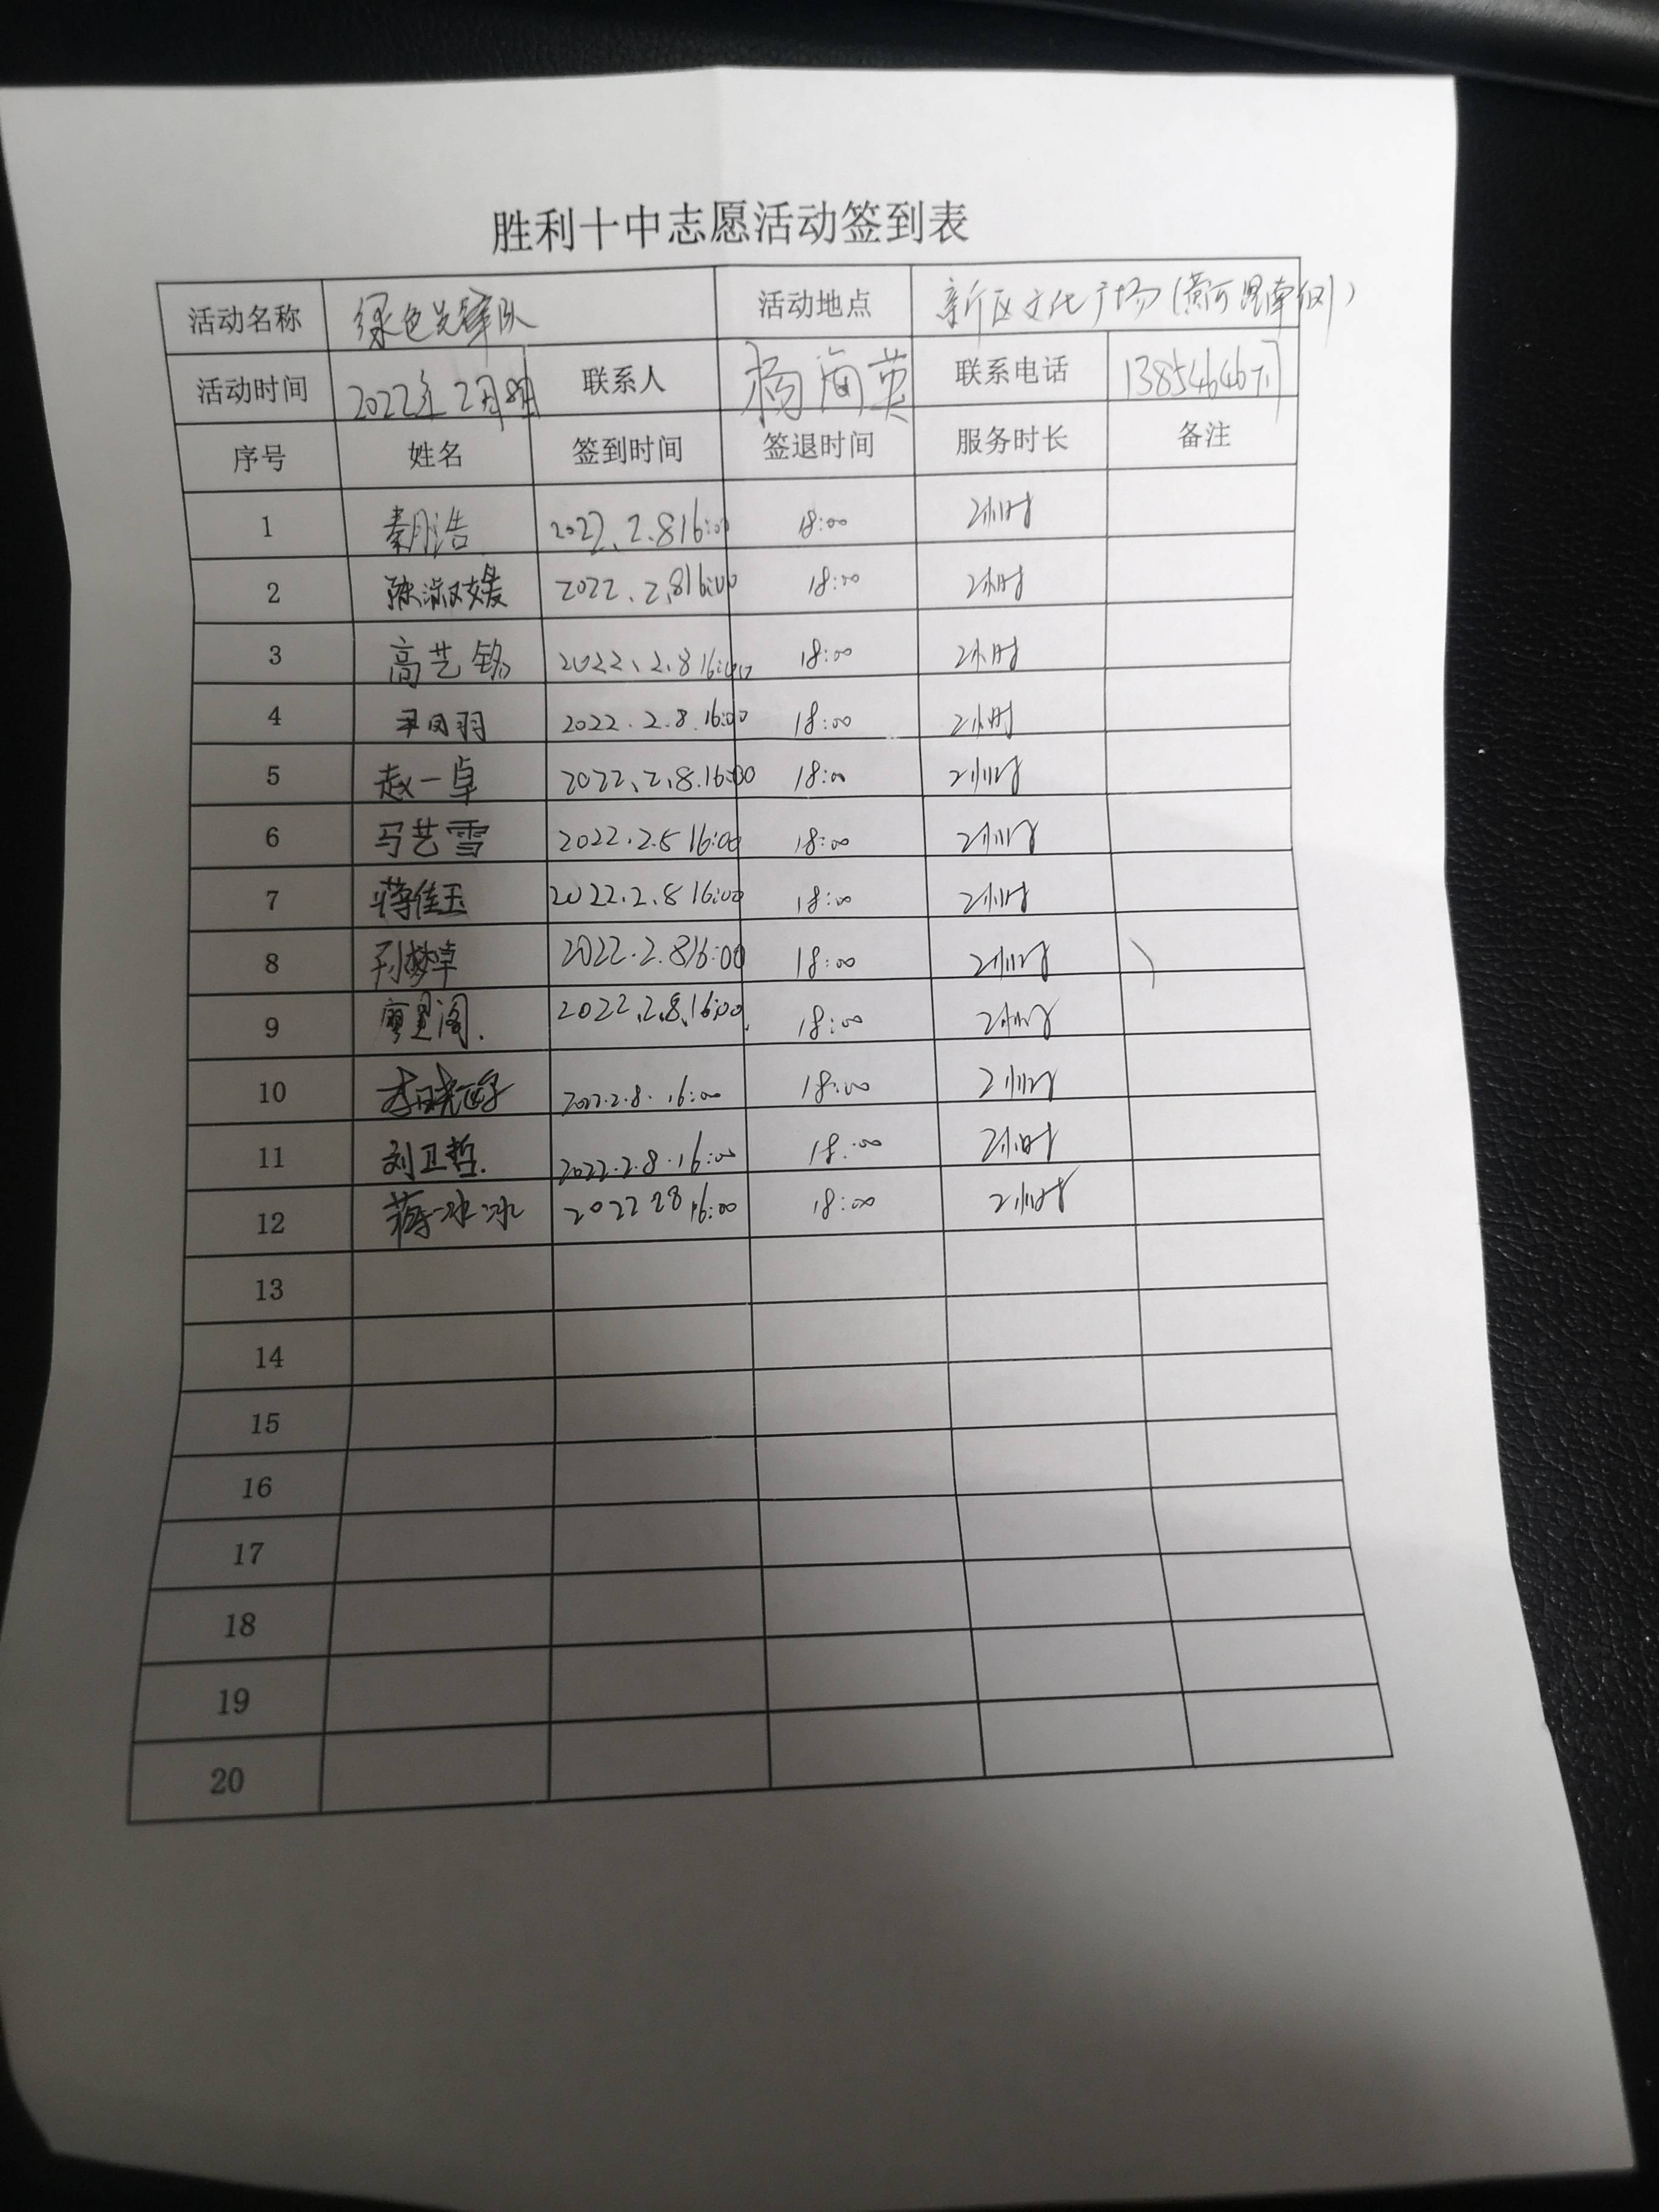 胜利十中志愿活动签到表
活动名称 绿色先锋队 活动地点 新区文化广场(黄河路南侧)
活动时间 2022年2月8日 联系人 杨海英 联系电话
序号 姓名 签到时间 签退时间 服务时长 备注
1 秦月浩 2022.2.8 16:00 18:00 2小时
2 陈淑媛 2022.2.8 16:00 18:00 2小时
3 高艺铭 2022.2.8 16:00 18:00 2小时
4 2022.2.8.16:00 18:00 2小时
5 赵一卓 2022.2.8.16:00 18:00 2小时
6 马艺雪 2022.2.5 16:00 18:00 2小时
7 蒋佳玉 2022.2.8 16:00 18:00 2小时
8 孙梦卓 2022.2.8 16:00 18:00 2小时
9 2022.2.8.16:00 18:00 2小时
10 2022.2.8.16:00 18:00 2小时
11 刘卫哲. 2022.2.8.16:00 18:00 2小时
12 蒋冰冰 2022 2 8 16:00 18:00 2小时
13
14
15
16
17
18
19
20